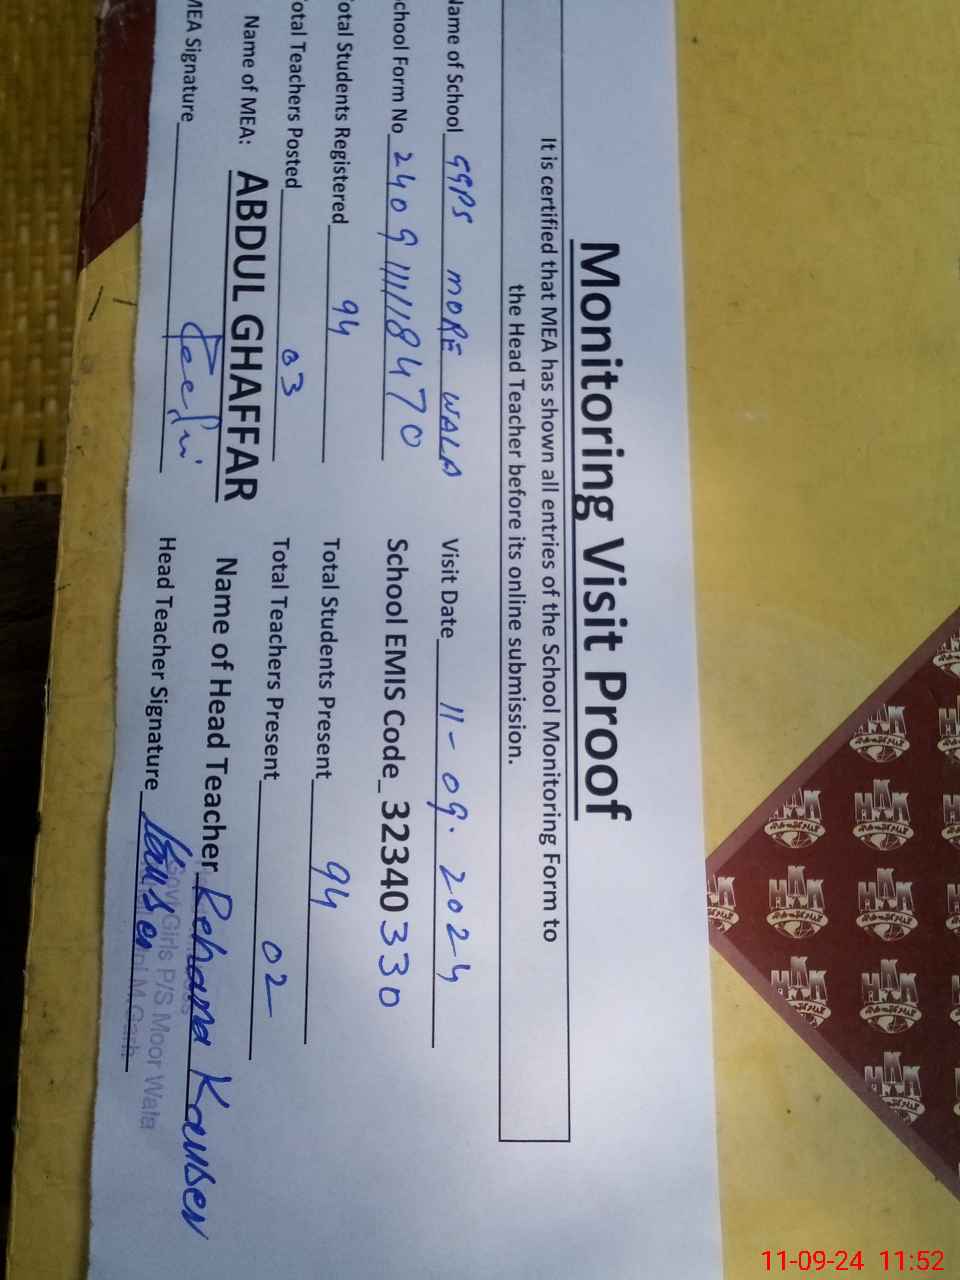 Monitoring Visit Proof
It is certified that MEA has shown all entries of the School Monitoring Form to
the Head Teacher before its online submission.
Name of School GGPS MORE WALA Visit Date 11-09.2024
School Form No 240911118470 School EMIS Code_32340330
Total Students Registered 94 Total Students Present 94
Total Teachers Posted 03 Total Teachers Present 02
Name of MEA: ABDUL GHAFFAR Name of Head Teacher Rehana Kauser
MEA Signature Head Teacher Signature Kauser
Govt Girls P/S Moor Wala
M.Garh
HAK
11-09-24 11:52